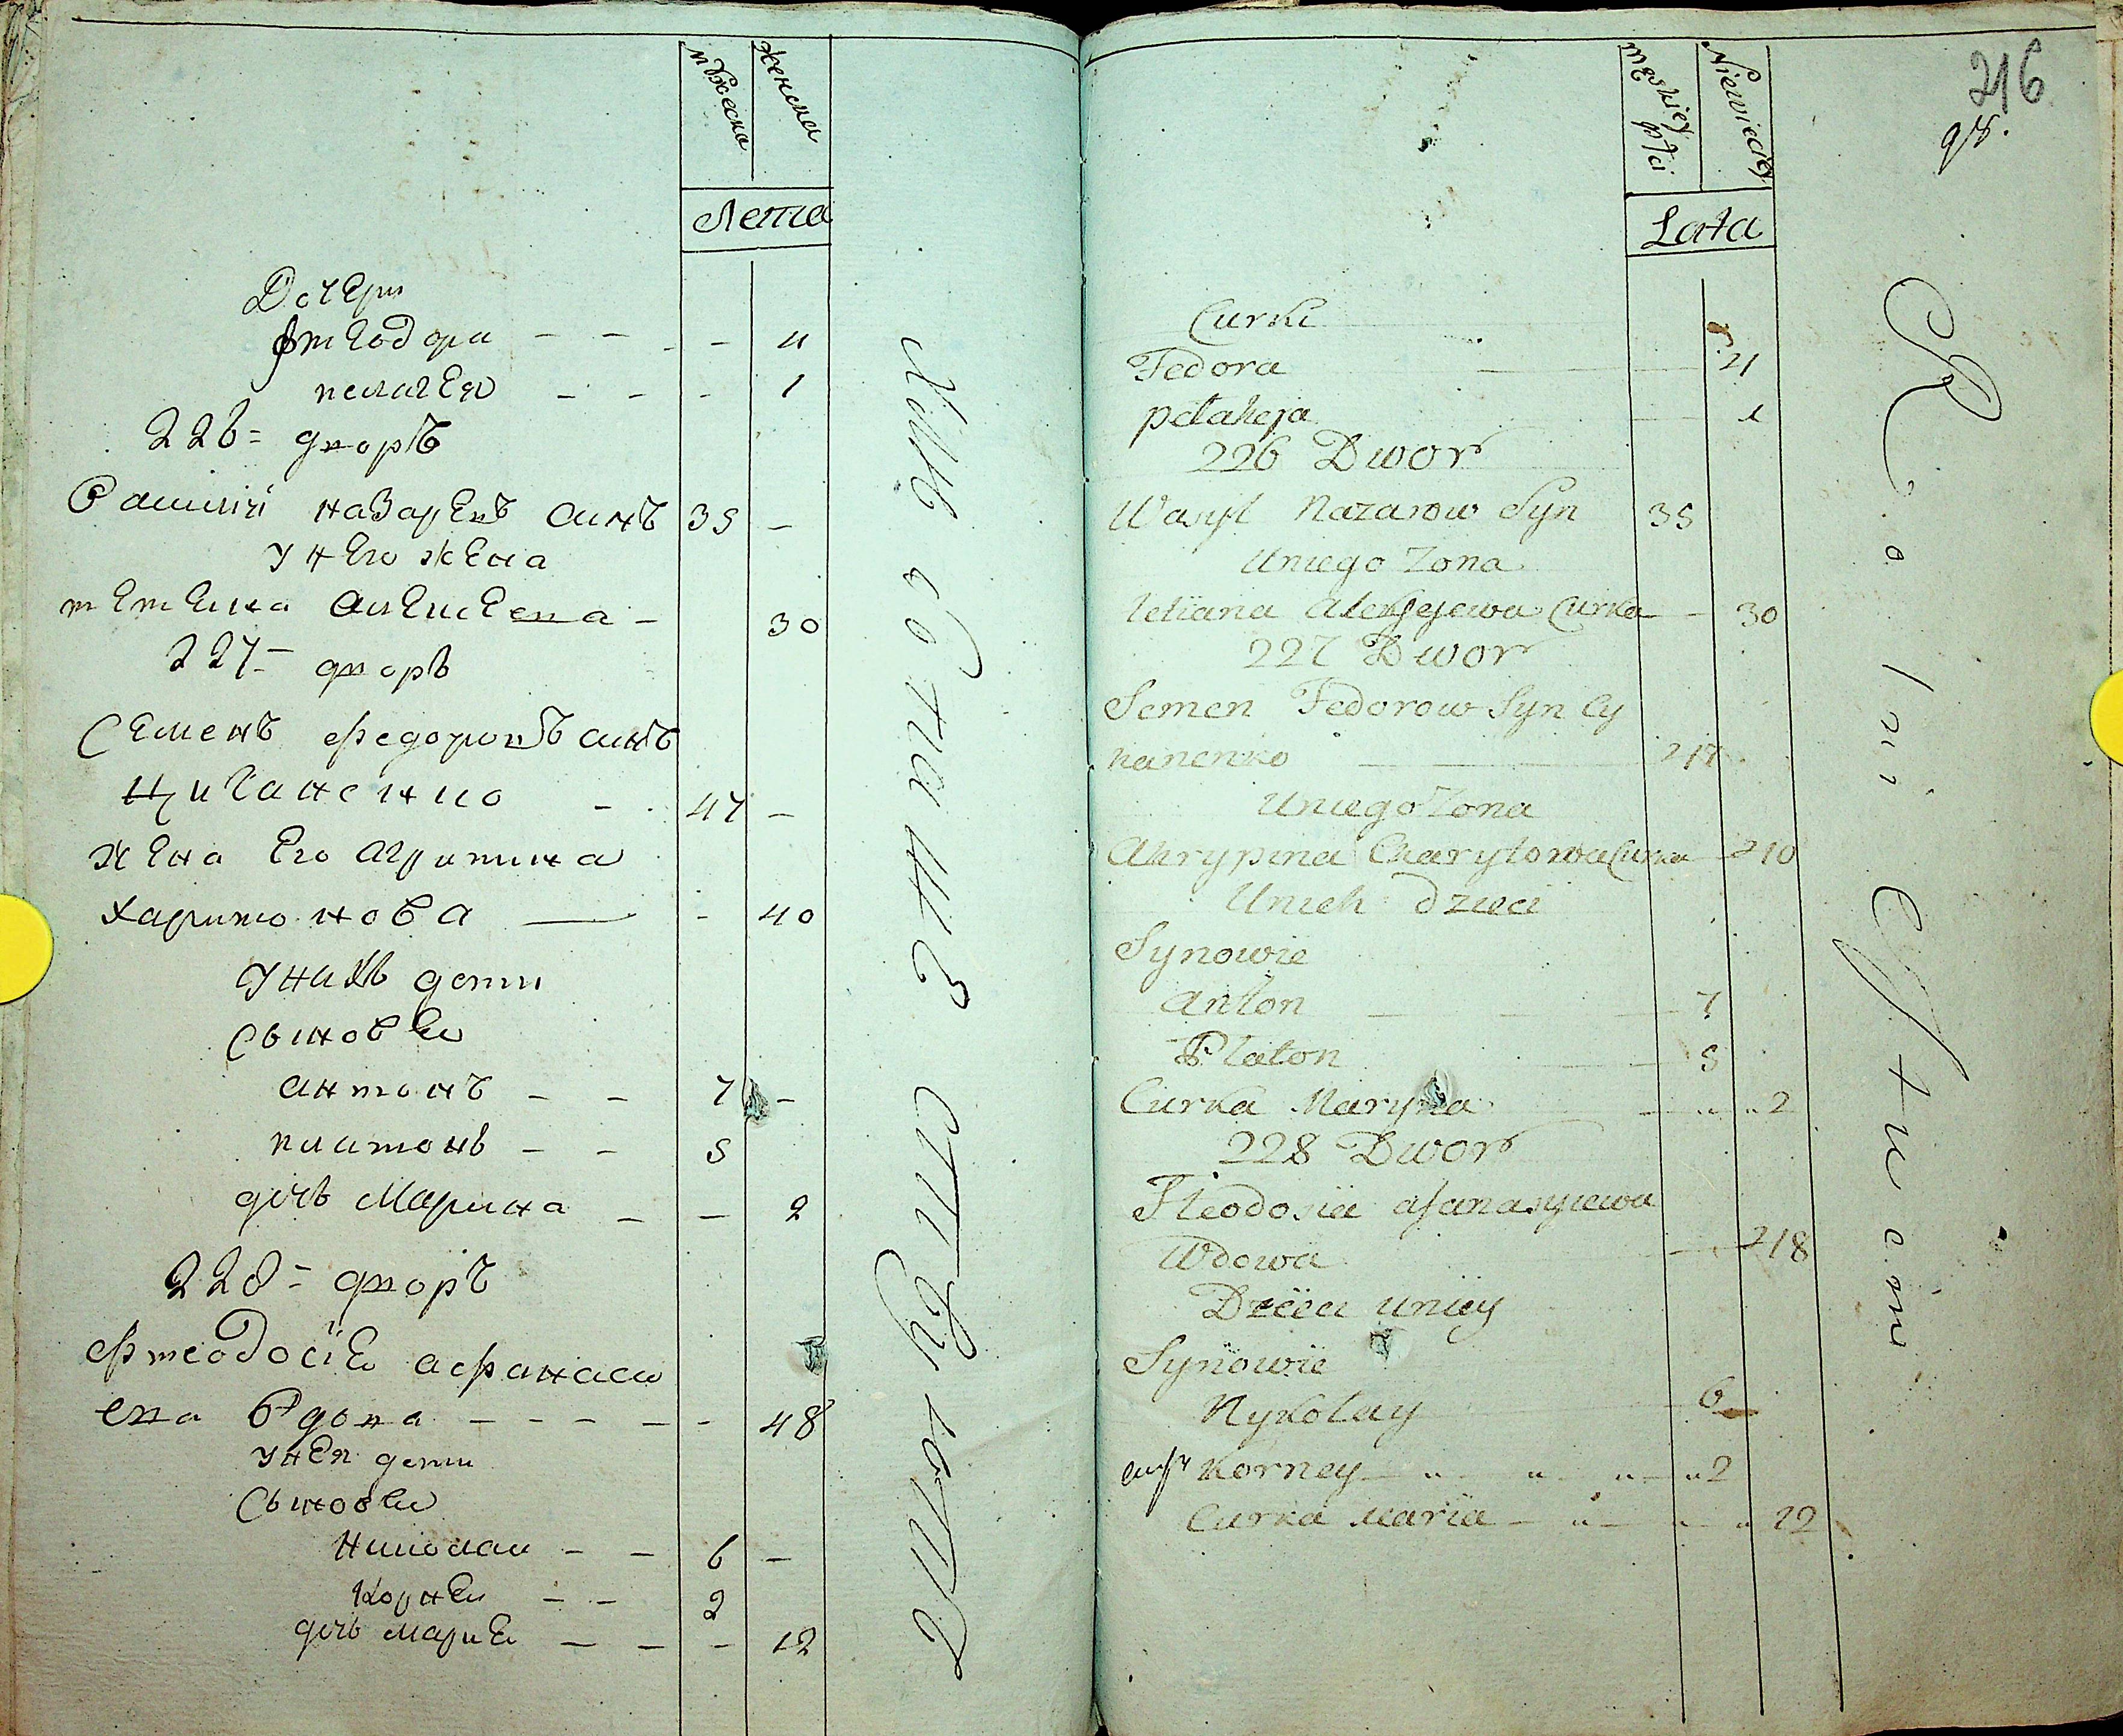 мужеска
женска
Лета
Дочери
фтеодора - - - - 4
пелагея - - - 1
226= дворъ
Василий Назаревъ синъ 35 -
у него жена
тетеяна алексеева - 30
227= дворъ
Семенъ федоровъ синъ
Циганенко - 47 -
жена его агрипина
Харитонова - 40
у нихъ дети
Сыновеи
антонъ - - 7 -
платонъ - - 5
дочь Марина - - 2
228= дворъ
фтеодосия афанаси
ева Вдова - - - - - 48
у нея дети
Сыновеи
Николаи - - 6 -
Корнеи - - 2
дочь Мария - - - 12
męskiey płci
Niewieciey
Lata
216
Curki
Fedora 4
pelaheja 1
226 Dwor
Wasyl Nazarow Syn 35
Uniego Zona
tetiana alexsejewa Curka - 30
227 Dwor
Semen Fedorow Syn Cy
hanenko 47
Uniego Zona
Ahrypina Charytowa Curka 40
Unich dzieci
Synowie
Anton 7
Platon 5
Curka Maryna 2
228 Dwor
Fteodosia afanasyiewa
Wdowa 48
Dzieci uniey
Synowie
Nykolay 6
Korney 2
Curka Maria 12